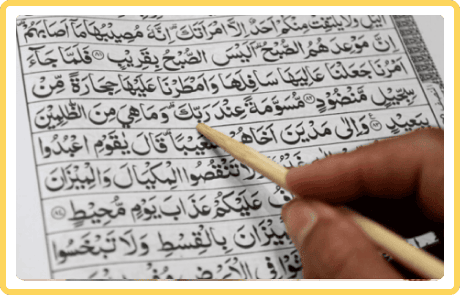 الَّيْلِ وَلَا يَلْتَفِتْ مِنْكُمْ اَحَدٌ اِلَّا امْرَاَتَكَ ؕ اِنَّهٗ مُصِيْبُهَا مَاۤ اَصَابَهُمْ
اِنَّ مَوْعِدَهُمُ الصُّبْحُ ؕ اَلَيْسَ الصُّبْحُ بِقَرِيْبٍ ﴿۸۱﴾ فَلَمَّا جَآءَ
اَمْرُنَا جَعَلْنَا عَالِيَهَا سَافِلَهَا وَاَمْطَرْنَا عَلَيْهَا حِجَارَةً مِّنْ
سِجِّيْلٍ مَّنْضُوْدٍ ﴿۸۲﴾ مُّسَوَّمَةً عِنْدَ رَبِّكَ ؕ وَمَا هِيَ مِنَ الظّٰلِمِيْنَ
بِبَعِيْدٍ ﴿۸۳﴾ وَاِلٰى مَدْيَنَ اَخَاهُمْ شُعَيْبًا ؕ قَالَ يٰقَوْمِ اعْبُدُوا
لَا تَنْقُصُوا الْمِكْيَالَ وَالْمِيْزَانَ
عَلَيْكُمْ عَذَابَ يَوْمٍ مُّحِيْطٍ ﴿۸۴﴾
بِالْقِسْطِ وَلَا تَبْخَسُوا
فِي الْاَرْضِ